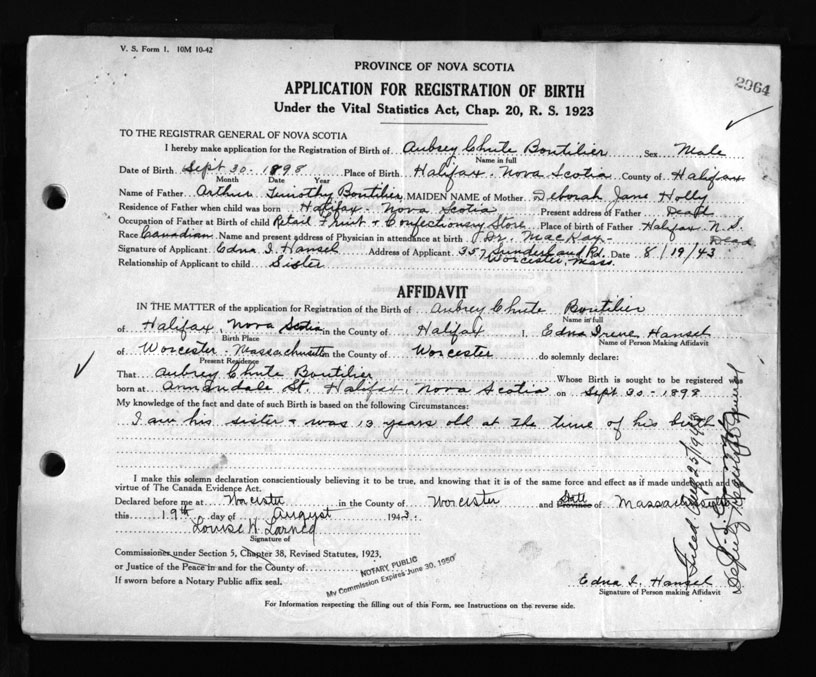 V. S. Form 1. 10M 10-42
PROVINCE OF NOVA SCOTIA
2964
APPLICATION FOR REGISTRATION OF BIRTH
Under the Vital Statistics Act, Chap. 20, R. S. 1923
TO THE REGISTRAR GENERAL OF NOVA SCOTIA
I hereby make application for the Registration of Birth of Aubrey Chute Boutilier Sex Male
Name in full
Date of Birth Sept 30 - 1898 Place of Birth Halifax - Nova Scotia County of Halifax
Month Date Year
Name of Father Arthur Timothy Boutilier MAIDEN NAME of Mother Deborah Jane Holly
Residence of Father when child was born Halifax - Nova Scotia Present address of Father Dead
Occupation of Father at Birth of child Retail Fruit + Confectionery Store Place of Birth of Father Halifax N.S.
Race Canadian Name and present address of Physician in attendance at birth Dr. MacKay - Dead
Signature of Applicant Edna I. Hansel Address of Applicant 357 Sunderland Rd. Date 8/19/43
Relationship of Applicant to child Sister Worcester, Mass.
AFFIDAVIT
IN THE MATTER of the application for Registration of the Birth of Aubrey Chute Boutilier
Name in full
of Halifax, Nova Scotia in the County of Halifax I, Edna Irene Hansel
Birth Place Name of Person Making Affidavit
of Worcester - Massachusetts in the County of Worcester do solemnly declare:
Present Residence
That Aubrey Chute Boutilier Whose Birth is sought to be registered was
born at Annandale St. Halifax, Nova Scotia on Sept 30 - 1898
My knowledge of the fact and date of such Birth is based on the following Circumstances:
I am his sister + was 13 years old at the time of his birth
I make this solemn declaration conscientiously believing it to be true, and knowing that it is of the same force and effect as if made under oath and by
virtue of The Canada Evidence Act.
Declared before me at Worcester in the County of Worcester and State Province of Massachusetts
this 19th day of August 1943.
Louise N. Larned
Signature of
Commissioner under Section 5, Chapter 38, Revised Statutes, 1923,
or Justice of the Peace in and for the County of
If sworn before a Notary Public affix seal.
NOTARY PUBLIC
My Commission Expires June 30, 1950
Edna I. Hansel
Signature of Person making Affidavit
For Information respecting the filling out of this Form, see Instructions on the reverse side.
Filed Aug 23/1943
Deputy Registrar General